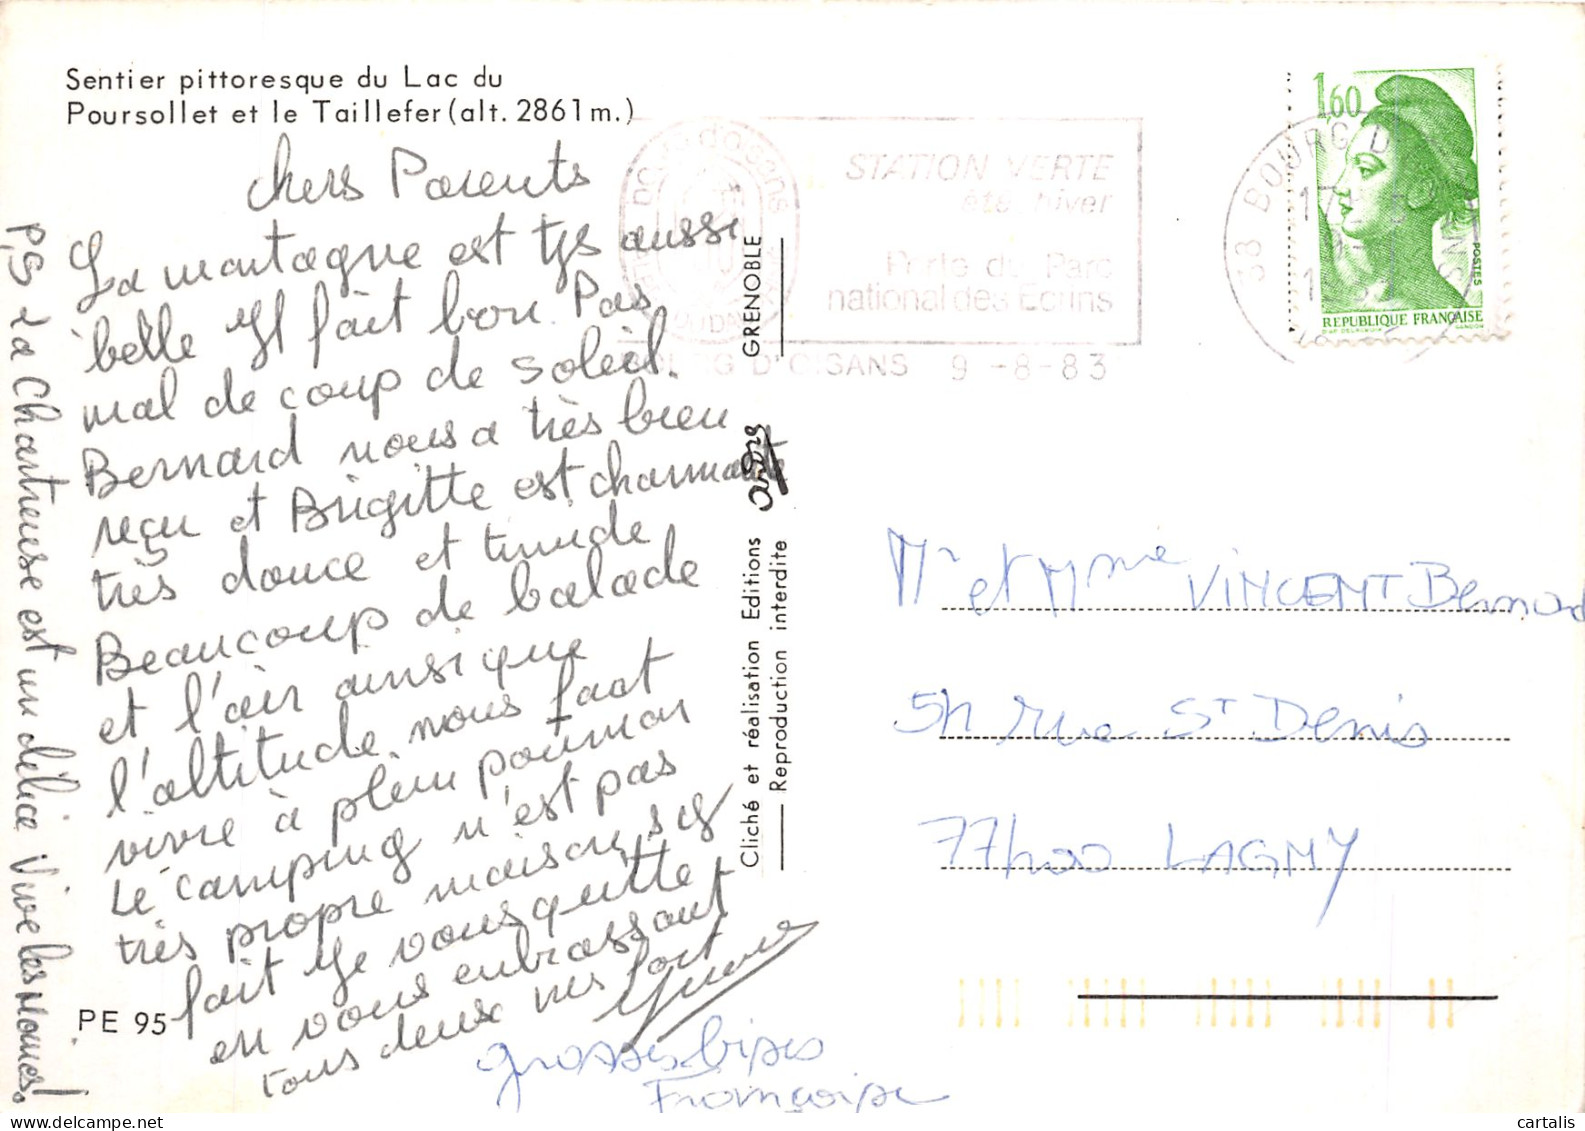 Sentier pittoresque du Lac du
Poursollet et le Taillefer (alt. 2861 m.)
chers Parents
La montagne est tjs aussi
belle Il fait bon Pas
mal de coup de soleil.
Bernard nous a très bien
reçu et Brigitte est charmante
très douce et timide
Beaucoup de balade
et l'air ainsi que
l'altitude nous faat
vivre à plein poumon
Le camping n'est pas
très propre mais on s'y
fait Je vous quitte
en vous embrassant
tous deux très fort
grosses bises
Françoise
PS La Chartreuse est un délice Vive les Moines!
PE 95
GRENOBLE
Cliché et réalisation Editions
Reproduction interdite
STATION VERTE
été hiver
Porte du Parc
national des Ecrins
BOURG D'OISANS 9 -8-83
38 BOURG D
1,60
POSTES
REPUBLIQUE FRANÇAISE
Mr et Mme VINCENT Bernard
54 rue St Denis
77400 LAGNY
cartalis